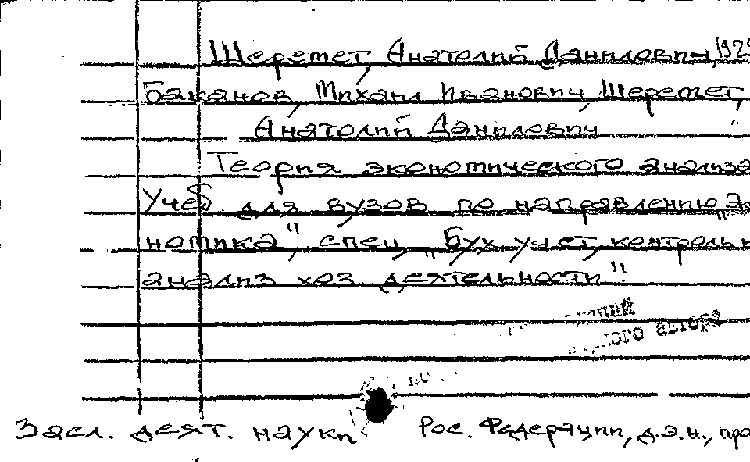 Шеремет, Анатолий Данилович, 192
Баканов, Михаил Иванович, Шеремет,
Анатолий Данилович
Теория экономического анализа
Учеб для вузов по направлению "Э
номика", спец. "Бух. учет, контроль и
анализ хоз. деятельности"
ного автора
Засл. деят. науки Рос. Федерации, д.э.н., про